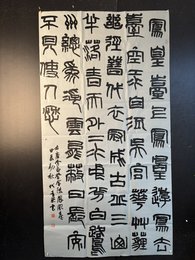 鳳皇臺上鳳皇遊鳳去
臺空江自流吳宮華草薶
幽徑晉代衣冠成古丘三山
半落青天外二水中分白鷺
洲總為浮雲能蔽日長安
不見使人愁